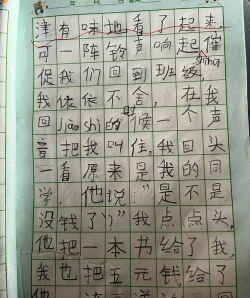 津有味地看了起来
可一阵铃声响起催
促我们回到班级
我依依不舍，在我
shíhou
回jiào shì的候一个声
音把我叫住，我回头
一看原来是我的同
学，他说：“是不是
没钱了”我点点头，
他把一本书给了我
我也把五元钱给了